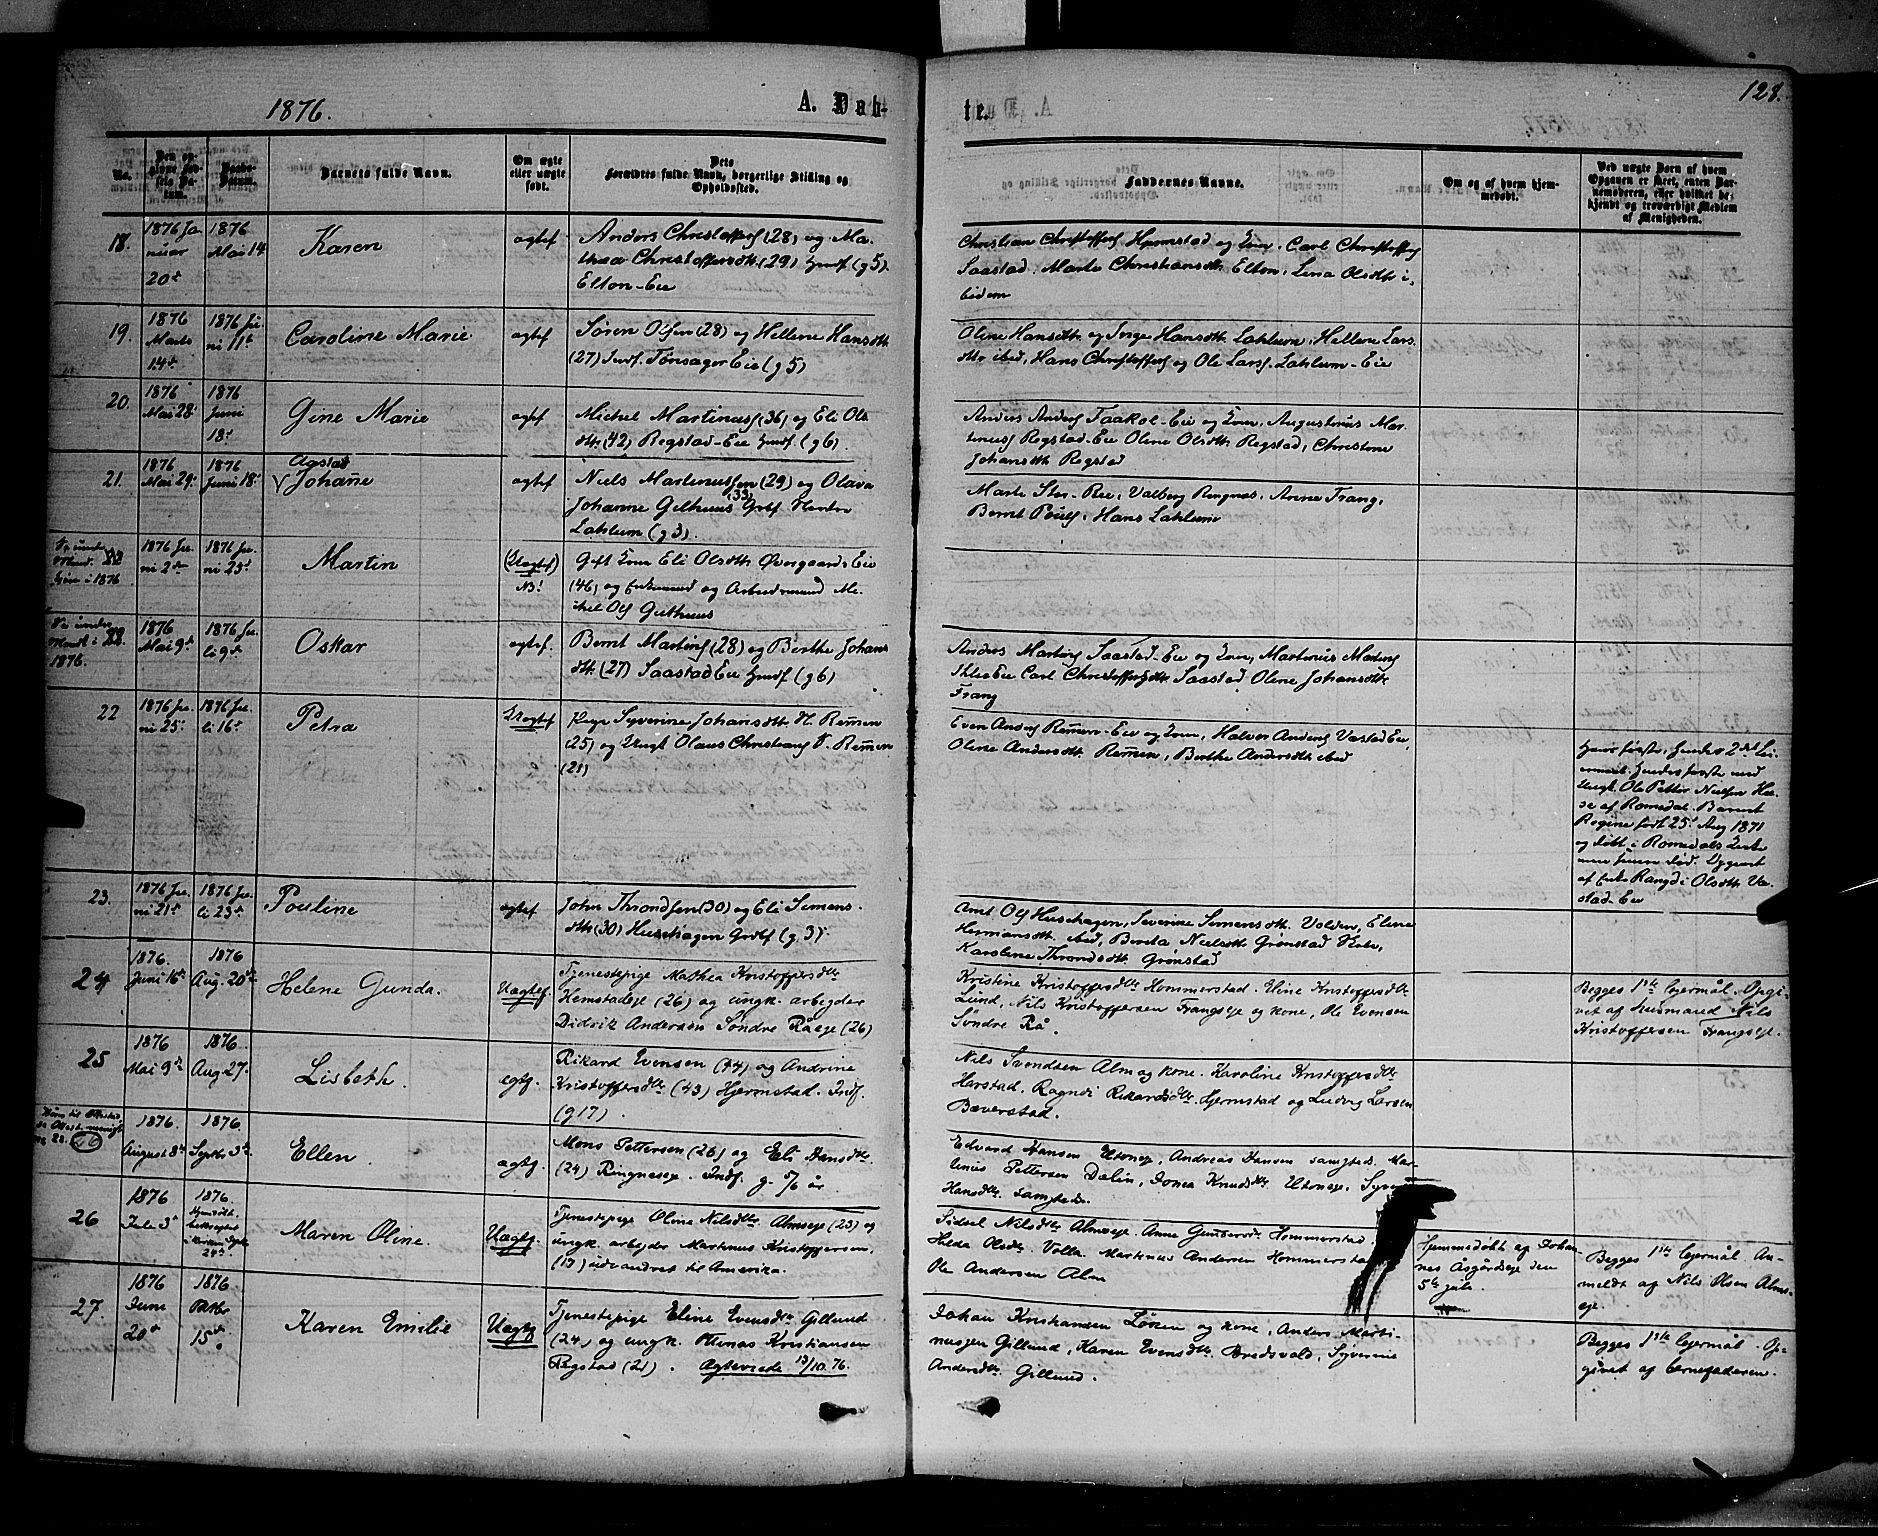 1876.
A. Døb-
te.
128.
No.
Den op-
givne Fød-
sels Da-
tum.
Daabs-
Datum.
Barnets fulde Navn.
Om ægte
eller uægte
født.
Dets
Forældres fulde Navn, borgerlige Stilling og
Opholdssted.
Faddernes Navne.
Om og af hvem hjem-
medøbt.
Ved uægte Børn af hvem
Opgaven er skeet, enten Bar-
nemoderen, eller hvilket be-
kjendt og troværdigt Medlem
af Menigheden.
18.
1876 Ja-
nuar
20de
1876
Mai 14
Karen
ægtef
Anders Christoffers (28) og Ma-
thea Christoffersdtr. (29) Indf (g 5)
Elton-Eie
Christian Christoffers Hjermstad og Kone, Carl Christoffers
Saastad, Marte Christiansdtr Elton, Lina Olsdtr i-
bidem
19.
1876
Marts
14de
1876 Ju-
ni 11te
Caroline Marie
ægtef
Søren Olsen (28) og Hellene Hansdtr
(27) Indf. Tønsager Eie (g 5)
Oline Hansdtr og Inge Hansdtr Lahlum, Hellene Lars-
dtr ibid, Hans Christoffers og Ole Lars. Lahlum-Eie
20.
1876
Mai 28.
1876
Juni
18de
Gine Marie
ægtef
Michel Martinus (36) og Eli Ols-
dtr. (42) Rogstad-Eie Indf. (g 6)
Anders Anders Faakol-Eie og Kone, Augustinus Mar-
tinus Rogstad-Eie Olene Olsdtr. Rogstad, Christine
Johansdtr Rogstad
21.
1876
Mai 29.
1876
Juni 18.
Aagstad
V Johanne
ægtef
Niels Martinussen (29) og Olava
Johanne Gilhuus (33) Grbf. Nordre
Lahlum (g 3).
Marte Stor-Ree, Valborg Ringnes, Anne Frang,
Bernt Pouls, Hans Lahlum
1876 Ju-
ni 2de
1876 Ju-
ni 25.
Martin
(Uægtef)
NB!
Gift Kone Eli Olsdtr Øvergaards Eie
(46) og Enkemand og Arbeidsmand Mi-
chel Ols Gilhuus
1876.
1876
Mai 9de
1876 Ju-
li 9de
Oskar
ægtef.
Bernt Martins (28) og Berthe Johans
dtr. (27) Saastad Eie Indf (g 6)
Anders Martins Saastad-Eie og Kone, Martinus Martins
Carl Christoffers Saastad Olene Johansdtr
Frang
22
1876 Ju-
ni 25.
1876 Ju-
li 16de
Petra
Uægtef
Pige Syverine Johansdtr N. Remmen
(25) og Ungk Olaus Christians S. Remmen
(21)
Even Anders Remmen-Eie og Kone, Halvor Anders Vastad Eie,
Oline Andersdtr. Remmen, Berthe Andersdtr ibid
Hans første, Hendes 2det Lei-
ermaal, hendes første med
Ungk. Ole Petter Nielsen
af Romedal. Barnet
Regine født 25. Aug 1871
og døbt i Romedals Kirke
men siden død. Opgivet
af Enke Rangdi Olsdtr Va-
stad-Eie
23.
1876 Ju-
ni 21de
1876 Ju-
li 23de
Pouline
ægtef
John Throndsen (30) og Eli Simens-
dtr (30) Huschagen Grbf (g 3)
Arnt Ols Huschagen, Severine Simensdtr. Volden, Eline
Hermansdtr. ibid, Berta Nielsdtr Grønstad,
Karoline Throndsdtr. Grønstad
24
1876.
Juni 16de
1876
Aug. 20de
Helene Gunda.
Uægtef.
Tjenestepige Mathea Kristoffersdtr
Hemstadeje (26) og ungk. arbejder
Didrik Andersen Søndre Råeje (26)
Kristine Kristoffersdtr Hommerstad. Eline Kristoffersdtr
Lund, Nils Kristoffersen Frangseje og kone, Ole Evensen
Søndre Rå.
Begges 1ste lejermål. Opgi-
vet af Husmand Nils
Kristoffersen Frangseje.
25
1876
Mai 9de
1876.
Aug. 27.
Lisbeth.
ægtf.
Rikard Evensen (44) og Andrine
Kristoffersdtr (43) Hjermstad. Indf.
(g 17).
Nils Svendsen Alm og kone. Karoline Kristoffersdtr
Harstad, Ragndi Rikardsdtr. Hjermstad og Ludvig Larsen
Bæverstad.
26
1876.
August 8de
1876.
Septbr 3de
Ellen.
ægtf.
Mons Pettersen (26) og Eli Hansdtr.
(24) Ringneseje. Indf. g. 5/6 år.
Edvard Hansen Eltoneje, Andreas Hansen samsteds. Mar-
tinius Pettersen Dalin, Jonea Knudsdtr. Utoneje, Syver
Hansdtr. samsteds.
26
1876
Juli 3de
1876
Hjemdøbt
bekræftet
i kirken Septr
24de
Maren Oline.
Uægtf.
Tjenestepige Oline Nilsdtr. Almseje (23) og
ungk. arbejder Martinus Kristoffersen,
(19) udvandret til Amerika.
Sidsel Nilsdtr Almseje. Anne Gunbjørdtr. Hommerstad,
Hilda Olsdtr. Volla. Martinus Andersen Hommerstad,
Ole Andersen Alm
Hjemmedøbt af Johan-
nes Asgårdseje den
5te juli.
Begges 1ste lejermål An-
meldt af Nils Olsen Alms-
eje.
27.
1876
Juni
20de
1876
Oktbr
15de
Karen Emilie
Uægtef
Tjenestepige Eline Evensdtr Gillund
(24) og ungk. Thomas Kristiansen
Rogstad (21). Ægteviede 13/10. 76.
Johan Kristiansen Løken og kone, Anders Marti-
nusen Gillund, Karen Evensdtr. Bredsvold, Syverine
Andersdtr. Gillund.
Begges 1ste lejermål. Op-
givet af barnefaderen.